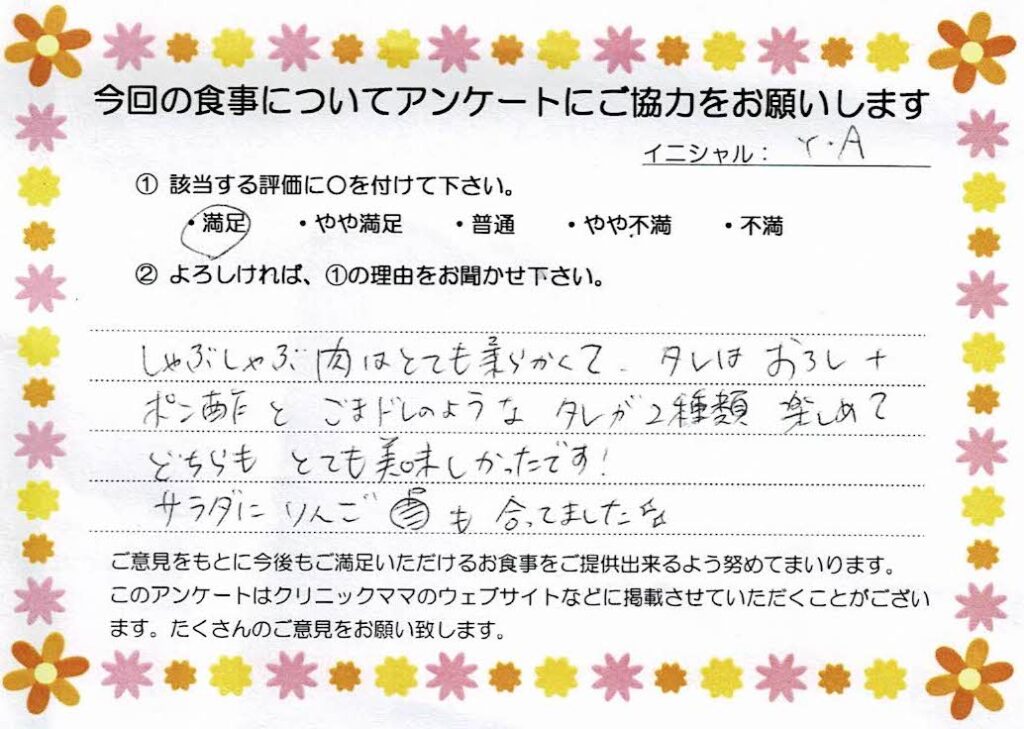 今回の食事についてアンケートにご協力をお願いします
イニシャル： Y・A
① 該当する評価に〇を付けて下さい。
・満足 ・やや満足 ・普通 ・やや不満 ・不満
② よろしければ、①の理由をお聞かせ下さい。
しゃぶしゃぶ肉はとても柔らかくて、タレは おろし＋
ポン酢と ごまドレのような タレが2種類 楽しめて
どちらも とても美味しかったです！
サラダに りんご も 合ってました
ご意見をもとに今後もご満足いただけるお食事をご提供出来るよう努めてまいります。
このアンケートはクリニックママのウェブサイトなどに掲載させていただくことがござい
ます。たくさんのご意見をお願い致します。